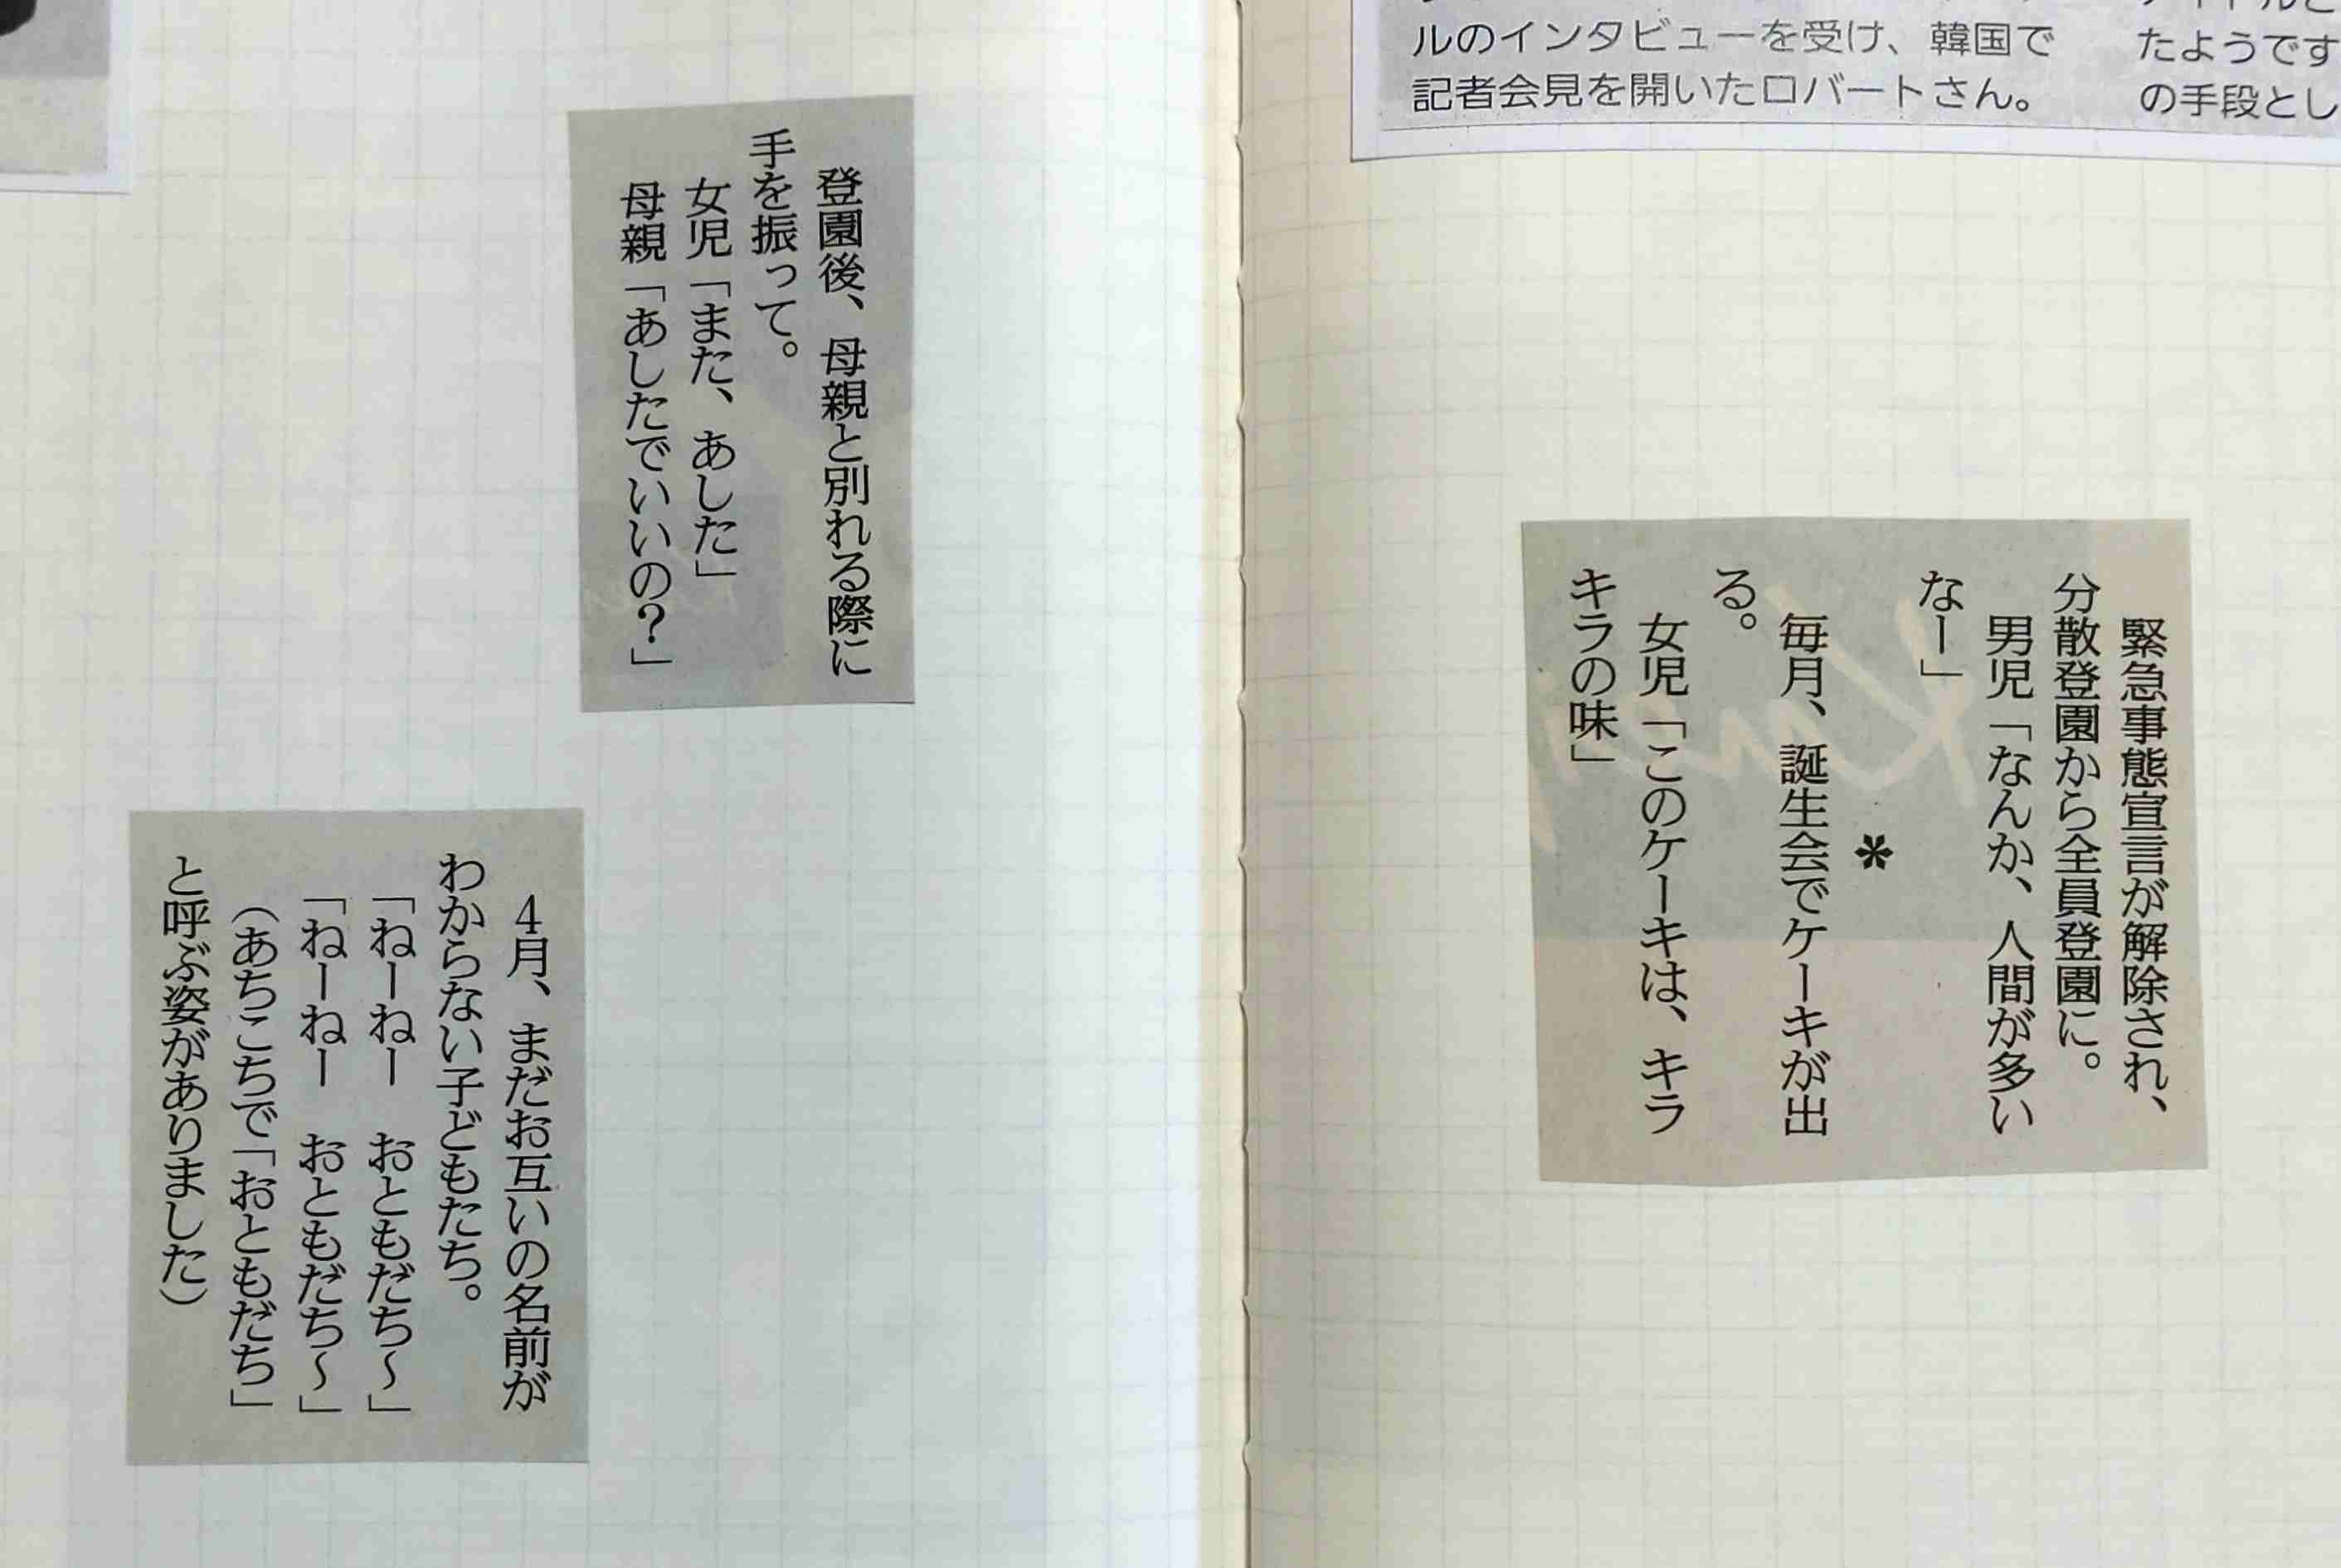 ルのインタビューを受け、韓国で
記者会見を開いたロバートさん。
たようです
の手段とし
緊急事態宣言が解除され、
分散登園から全員登園に。
男児「なんか、人間が多い
なー」
*
毎月、誕生会でケーキが出
る。
女児「このケーキは、キラ
キラの味」
登園後、母親と別れる際に
手を振って。
女児「また、あした」
母親「あしたでいいの？」
4月、まだお互いの名前が
わからない子どもたち。
「ねーねー　おともだち～」
「ねーねー　おともだち～」
（あちこちで「おともだち」
と呼ぶ姿がありました）